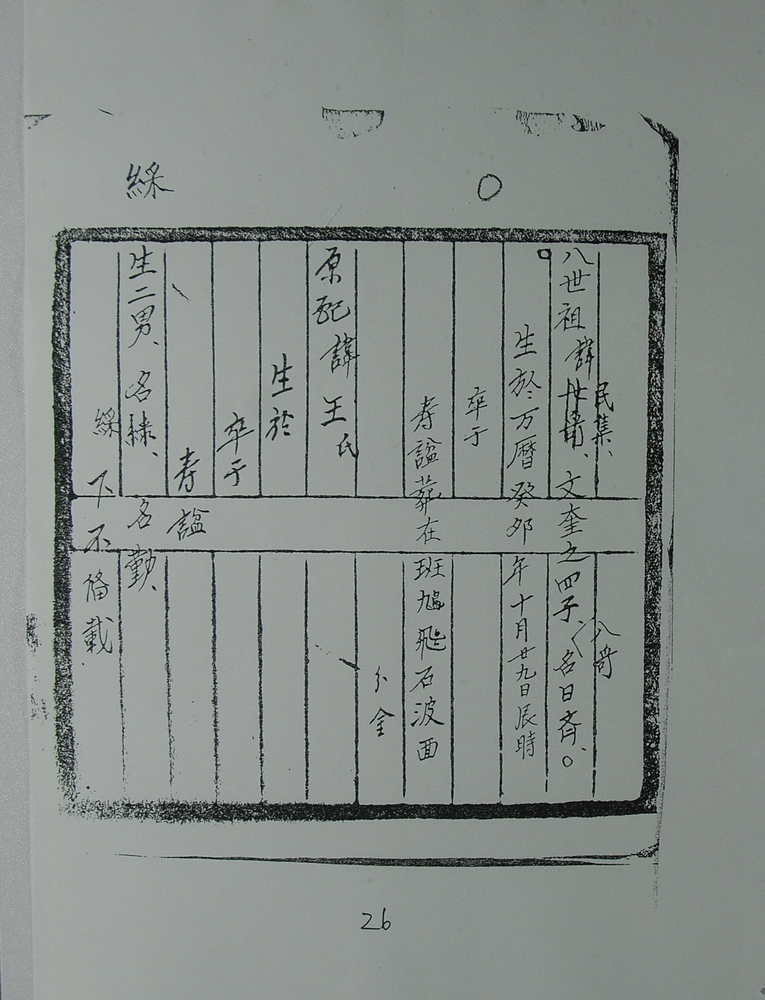 綵
民集、
八哥
八世祖諱世甫、文奎之四子、名日齊、
生於万曆癸卯年十月廿九日辰時
卒于
寿諡葬在班鳩飛石波面
分金
原配諱王氏
生於
卒于
寿諡
生二男、名祿、名勤、
綵下不俻載
26